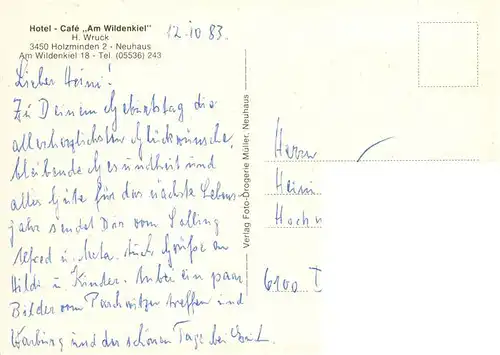 Hotel - Café „Am Wildenkiel"
H. Wruck
3450 Holzminden 2 - Neuhaus
Am Wildenkiel 18 - Tel. (05536) 243
12.10 83.
Lieber Heini!
Zu Deinem Geburtstag die
allerherzlichsten Glückwünsche,
bleibende Gesundheit und
alles Gute für das nächste Lebens-
jahr sendet Dir vom Solling
Alfred u. Meta. Auch Grüße an
Hilde u. Kinder. Anbei ein paar
Bilder vom treffen und
Warburg und der schönen Tage bei
Verlag Foto-Drogerie Müller, Neuhaus
Herrn
Hein
Hoch
6100